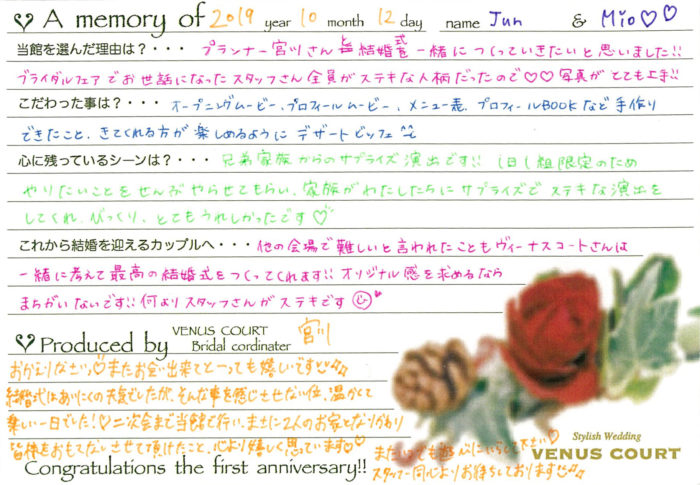 A memory of 2019 year 10 month 12 day name Jun & Mio♡♡
当館を選んだ理由は？・・・ プランナー宮川さんと結婚式を一緒につくっていきたいと思いました!!
ブライダルフェアでお世話になったスタッフさん全員がステキな人柄だったので♡♡写真がとても上手!!
こだわった事は？・・・ オープニングムービー、プロフィールムービー、メニュー表、プロフィールBOOKなど手作り
できたこと、きてくれる方が楽しめるようにデザートビッフェ^^
心に残っているシーンは？・・・ 兄弟家族からのサプライズ演出です!! 1日1組限定のため
やりたいことをぜんぶやらせてもらい、家族がわたしたちにサプライズでステキな演出を
してくれ、びっくり、とてもうれしかったです♡
これから結婚を迎えるカップルへ・・・ 他の会場で難しいと言われたこともヴィーナスコートさんは
一緒に考えて最高の結婚式をつくってくれます!! オリジナル感を求めるなら
まちがいないです!! 何よりスタッフさんがステキです☺♡
Produced by VENUS COURT Bridal cordinater 宮川
おかえりなさい♡またお会い出来てとーっても嬉しいです♡♪♪
結婚式はあいにくの天気でしたが、そんな事を感じさせない位、温かくて
楽しい一日でした!♡二次会まで当館で行い、まさに2人のお家となりかわり
皆様をおもてなしさせて頂けたこと、心より嬉しく思っています♡♡
またいつでも遊びにいらして下さい♡
スタッフ一同心よりお待ちしております♡♪♪
Congratulations the first anniversary!!
Stylish Wedding
VENUS COURT